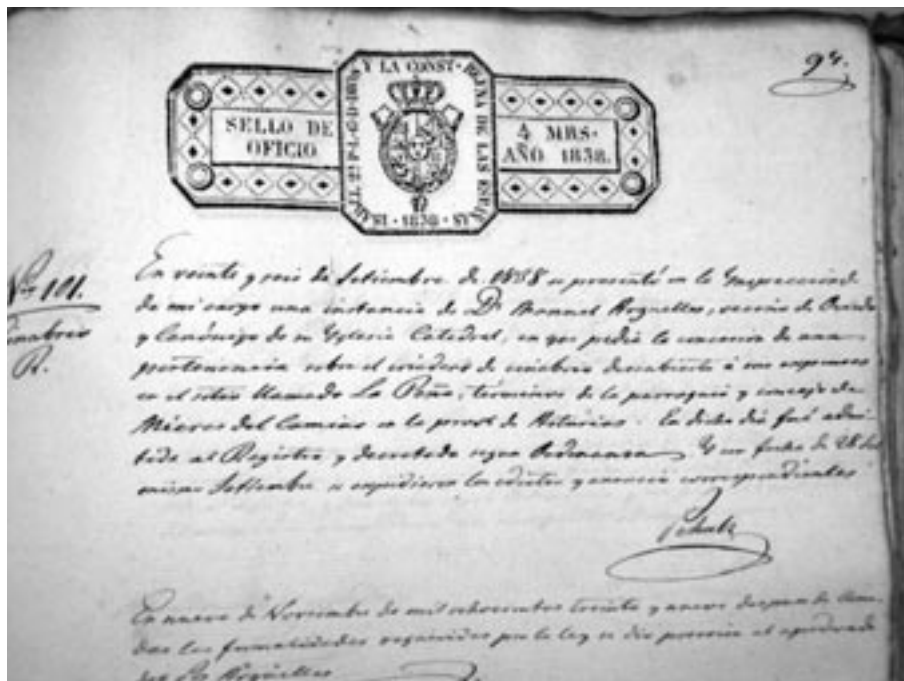 94.
ISABEL 2ª P. L. G. D. DIOS Y LA CONST. REYNA DE LAS ESPAÑAS
SELLO DE
OFICIO
4 MRS.
AÑO 1838.
1838
Nº 101.
Cinabrio
R.
En veinte y seis de Setiembre de 1838 se presentó en la Ynspeccion de
de mi cargo una instancia de Dn Manuel Arguelles, vecino de Oviedo
y Canónigo de su Yglesia Catedral, en que pedia la concesion de una
pertenencia sobre el criadero de cinabrio descubierto á sus expensas
en el sitio llamado La Peña, términos de la parroquia y concejo de
Mieres del Camino en la provª de Asturias. En dicho dia fué admi-
tida al Registro y decretada segun Ordenanza. Y con fecha de 28 del
mismo Setiembre se expidieron los edictos y anuncios correspondientes
En nueve de Noviembre de mil ochocientos treinta y nueve despues de
das las formalidades requeridas por la ley se dio posesion al apoderado
del Sr Arguelles